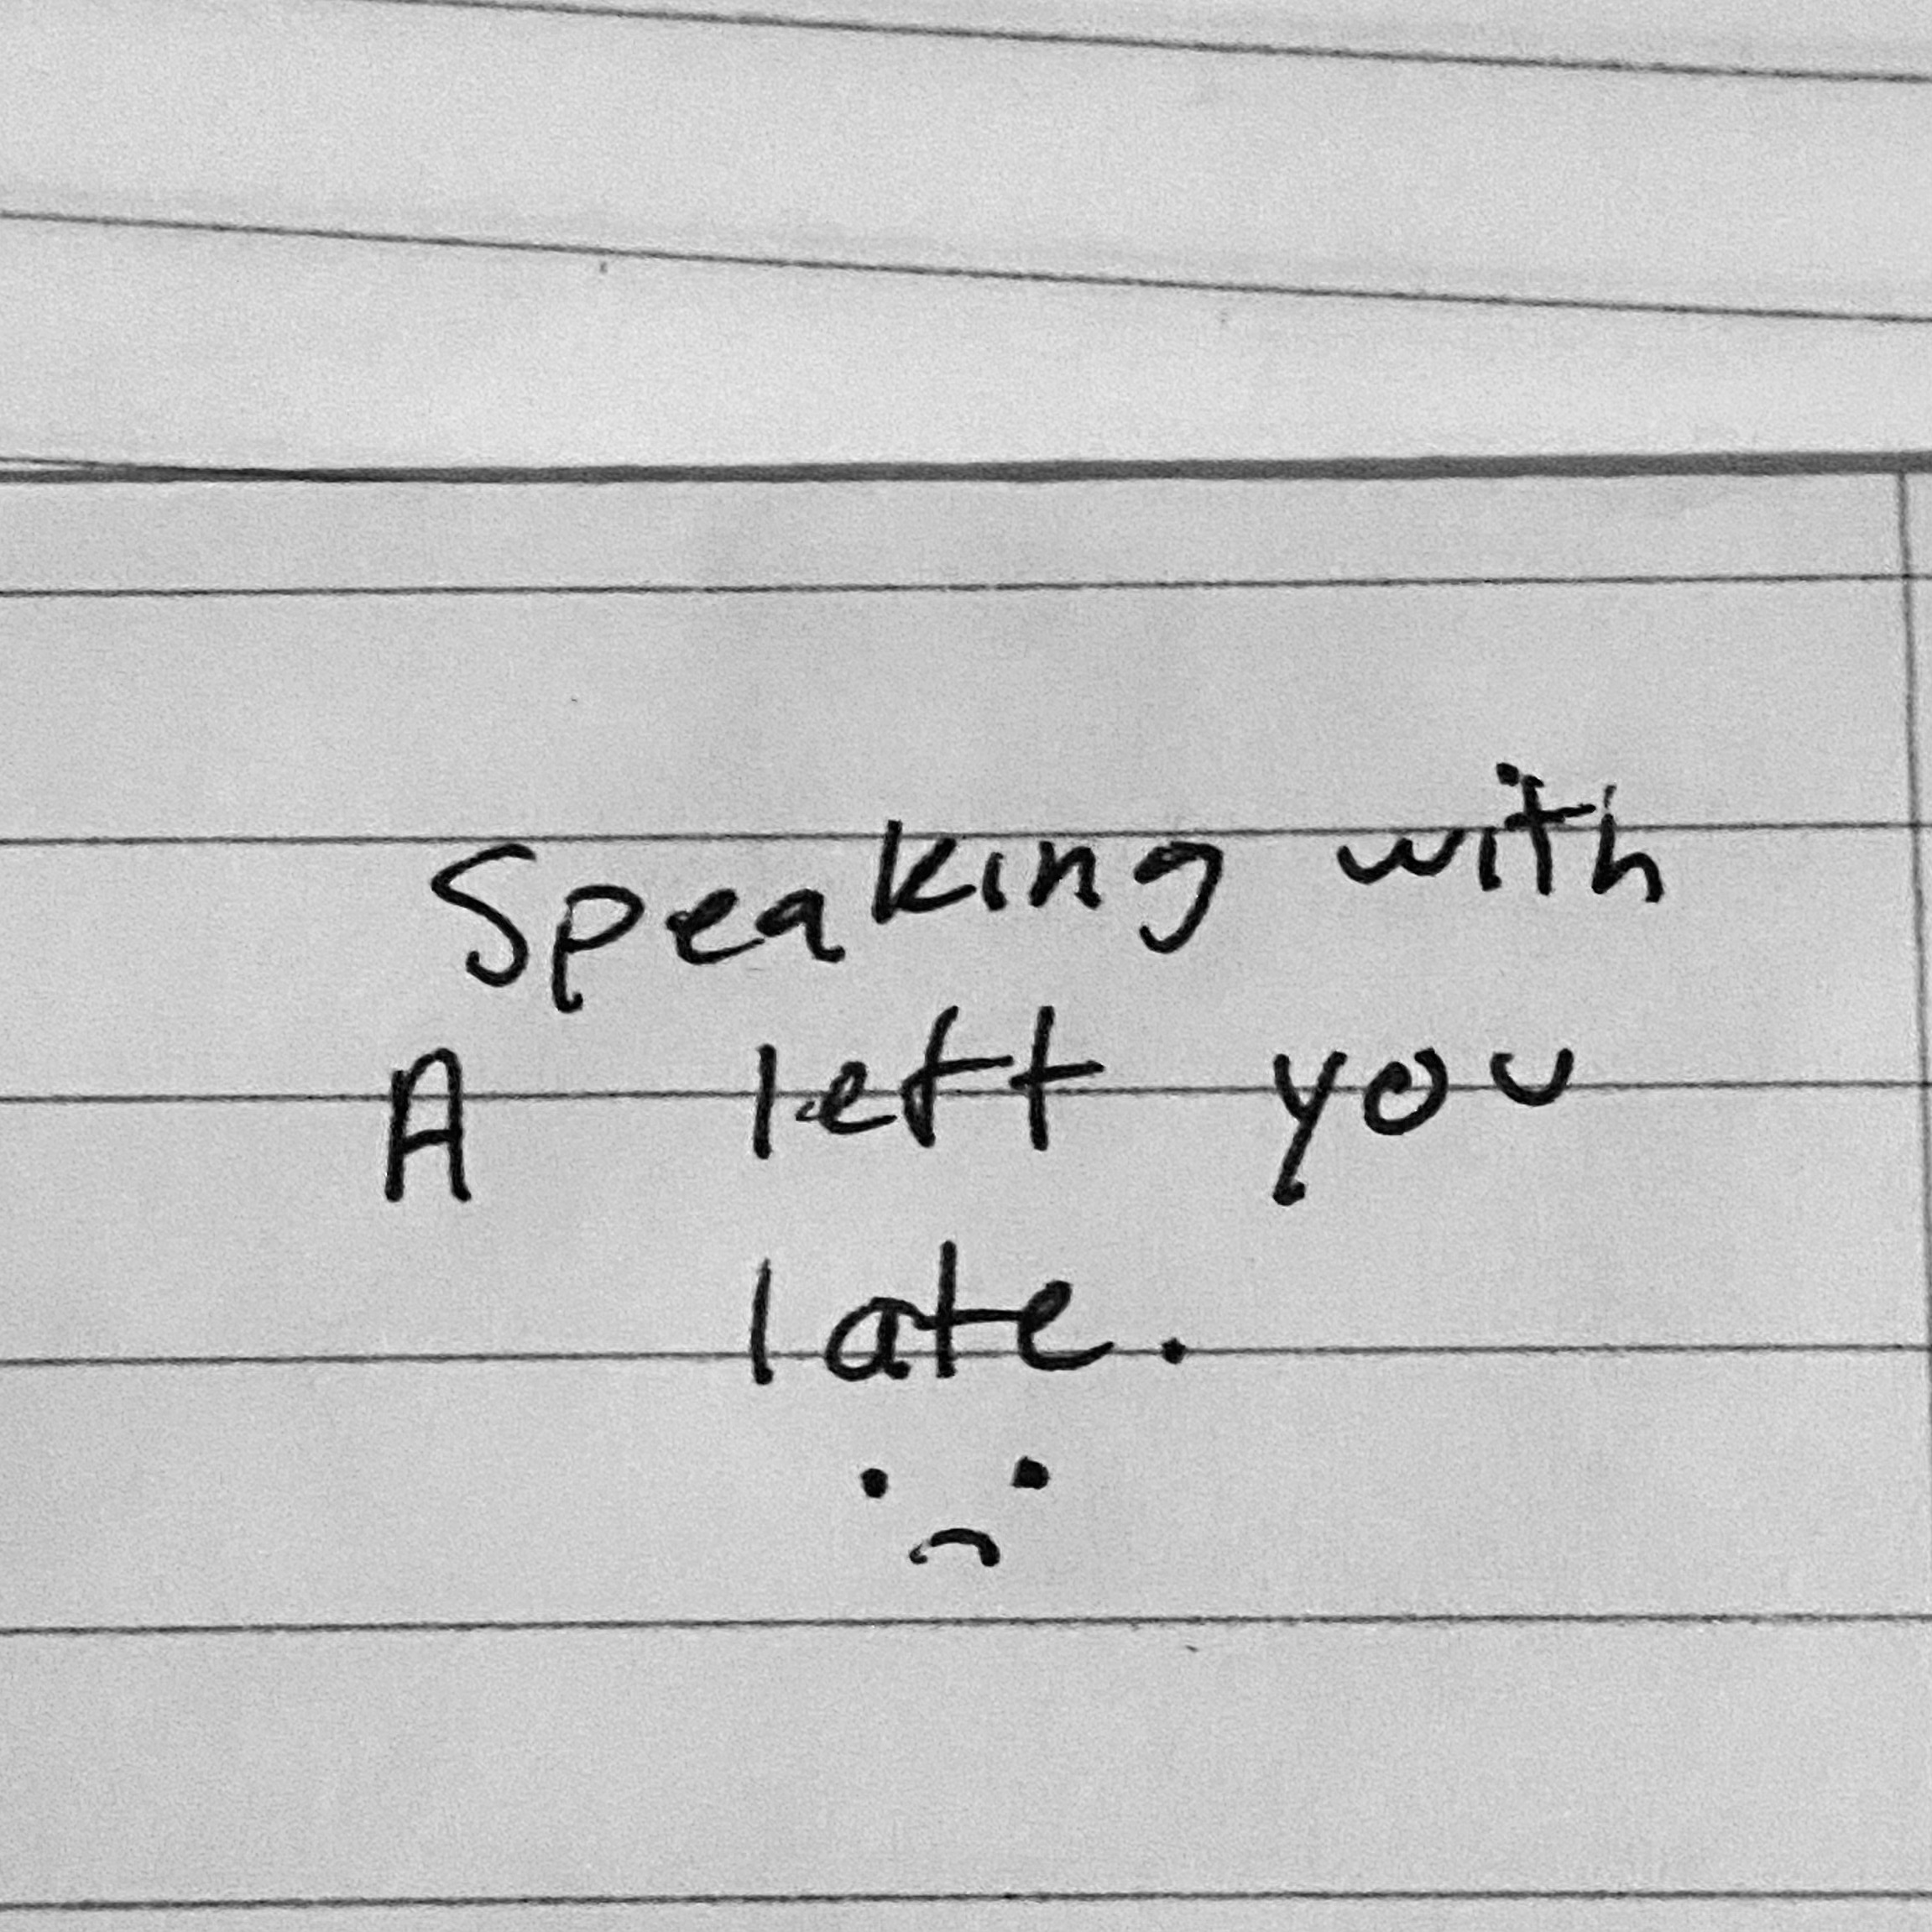 Speaking with
A left you
late.